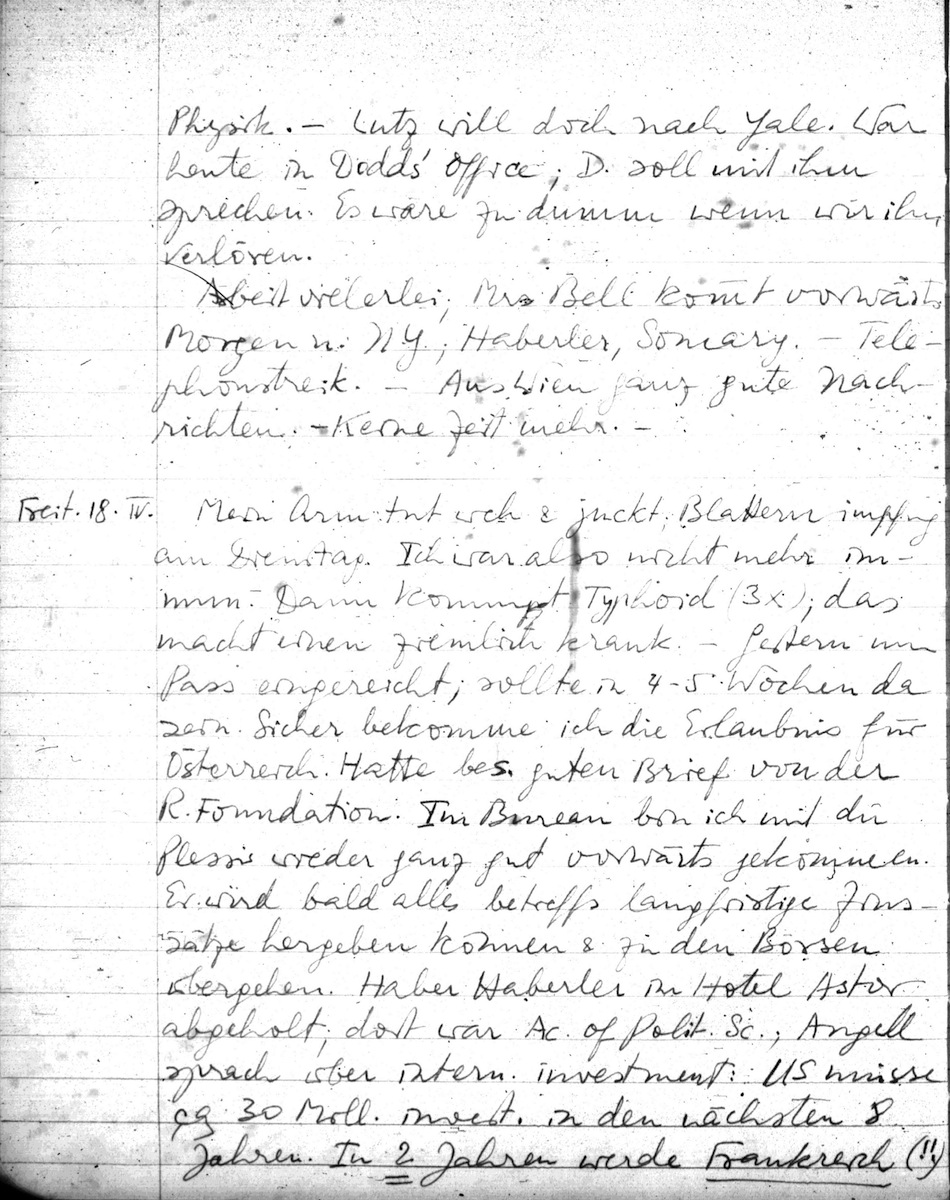 Physik. – Lutz will doch nach Yale. War
heute in Dodds' Office; D. soll mit ihm
sprechen. Es wäre zu dumm wenn wir ihn
verlören.
Arbeit vielerlei; Mrs Bell kom̄t vorwärts
Morgen n. NY.; Haberler, Somary. – Tele-
phonstreik. – Aus Wien ganz gute Nach-
richten. – Keine Zeit mehr. –
Freit. 18. IV. Mein Arm tut weh & juckt, Blattern impfng
am Dienstag. Ich war also nicht mehr im-
mun. Dann kommt Typhoid (3x); das
macht einen ziemlich krank. – Gestern um
Pass eingereicht; sollte in 4-5 Wochen da
sein. Sicher bekomme ich die Erlaubnis für
Österreich. Hatte bes. guten Brief von der
R. Foundation. Im Bureau bin ich mit du
Plessis wieder ganz gut vorwärts gekommen.
Er wird bald alles betreffs langfristige Zins-
sätze hergeben können & zu den Börsen
übergehen. Habe Haberler in Hotel Astor
abgeholt; dort war Ac. of Polit. Sc.; Angell
sprach über intern. investment: US müsse
30 Mill. invest. in den nächsten 8
Jahren. In 2 Jahren werde Frankreich (!!)